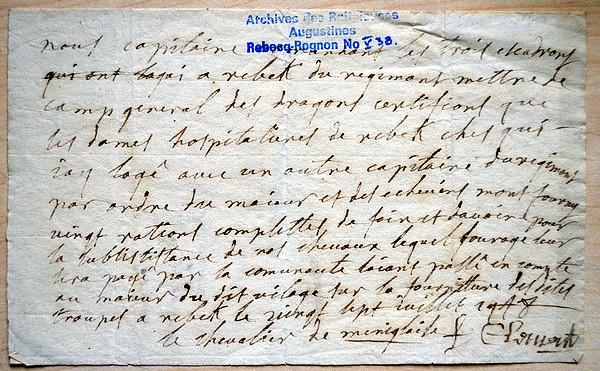 Archives des Religieuses
Augustines
Rebecq-Rognon No V 38.
nous capitaine commandant les trois escadrons
qui ont logés a rebek du regimant mettre de
camp general des dragons certifions que
les dames hospitalieres de rebek ches qui
iay logê avec un autre capitaine du regiment
par ordre du maieur et des echevins mont fourny
vingt rations complettes de foin et davoin pour
la subsistance de nos chevaux lequel fourage leur
sera payê par la comunaute laiant passê en compte
au maieur du dit vilage sur la fourniture des dites
troupes a rebek le vingt sept iuillet
le chevalier de